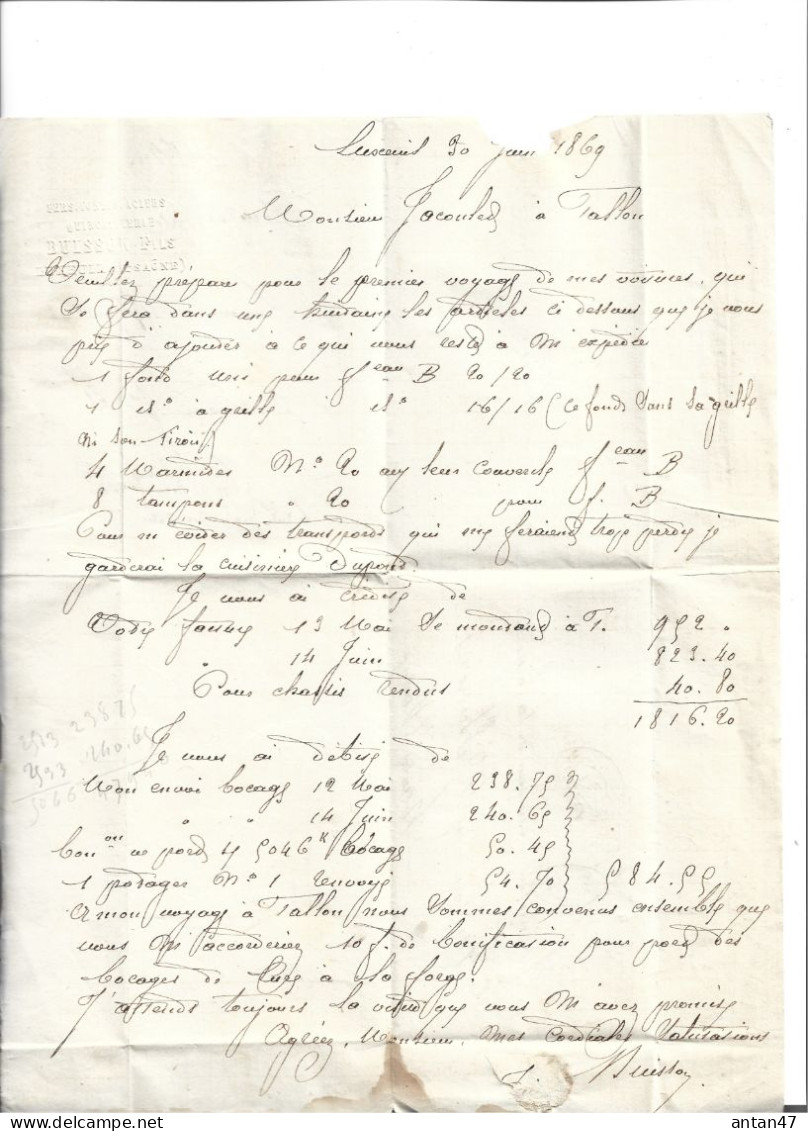 Luxeuil 30 juin 1869
BUISSON FILS
Monsieur à Fallon
Veuillez préparer pour le premier voyage de mes voitures, qui
se fera dans une huitaine les articles ci dessous que je vous
prie d'ajouter à ce qui vous reste à m'expédier
1 fond uni pour f eau B 20/20
1 id à grille id 16/16 (le fond sans sa grille
ni son tiroir)
4 Marmites No 20 avec leur couvercle f eau B
8 tampons " 20 pour f. B
Pour m'éviter des transports qui me feraient trop perdre je
garderai la cuisinière Dupont.
Je vous ai crédité de
Votre facture 13 Mai se montant à f. 952 "
" 14 Juin 823.40
Pour chassis rendus 40.80
1816.20
Je vous ai débité de
Mon envoi bocage 12 Mai 238.75
" " 14 Juin 240.65
bon on de port 5046 k bocage 50.45
1 potager No 1 renvoyé 54.70 584.55
A mon voyage à Fallon nous sommes convenus ensemble que
vous m'accorderiez 10 f. de bonification pour port des
bocages de Lure à la forge.
J'attends toujours la visite que vous m'avez promise
Agréez, Monsieur, mes cordiales salutations
Buisson
antan47